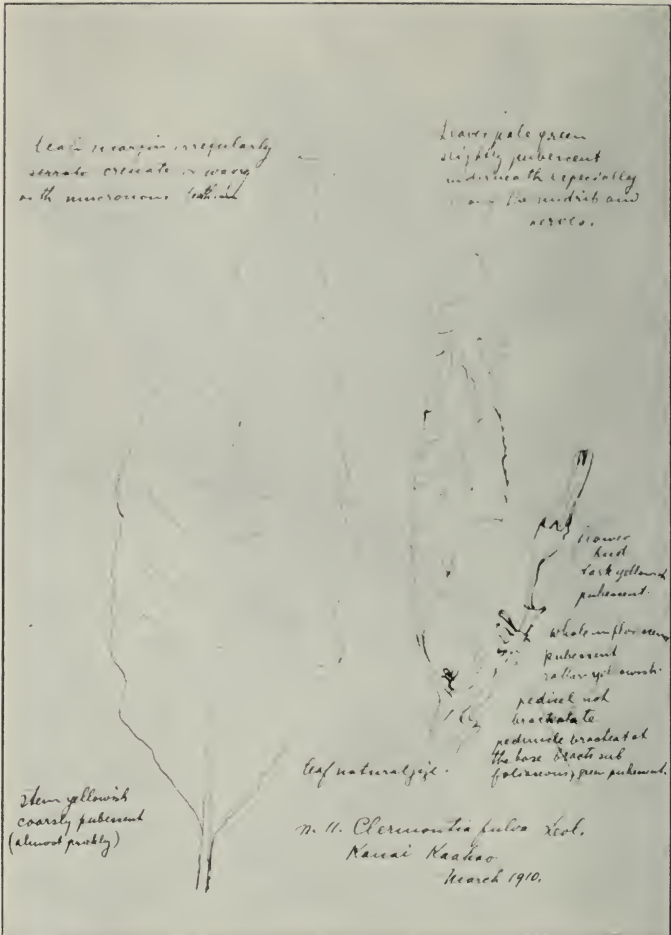 Leaf margin irregularly
serrate crenate or wavy
with mucronous
Leaves pale green
slightly pubescent
underneath especially
on the midrib and
nerves.
flower
bud
dark yellowish
pubescent.
whole inflorescence
pubescent
rather yellowish.
pedicel not
bracteolate
peduncle bracteat at
the base bracts sub
foliaceous, green pubescent.
leaf natural size.
stem yellowish
coarsly pubescent
(almost prickly)
n. 11. Clermontia fulva Leol.
Kauai Kaahao
March 1910.